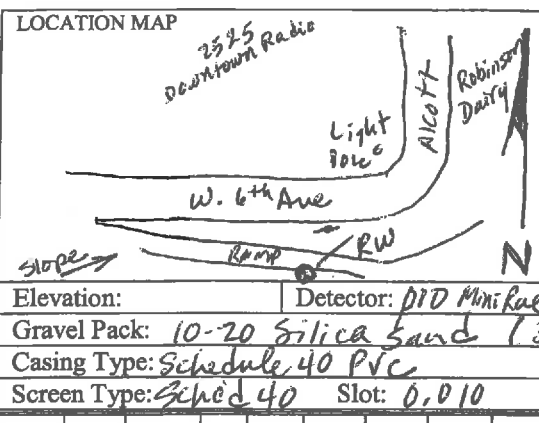 LOCATION MAP
2525
Downtown Radio
Light
Pole
Alcott
Robinson
Dairy
W. 6th Ave
RW
Ramp
Slope
N
Elevation: Detector: PID MiniRae
Gravel Pack: 10-20 Silica Sand
Casing Type: Schedule 40 PVC
Screen Type: Sched 40 Slot: 0.010